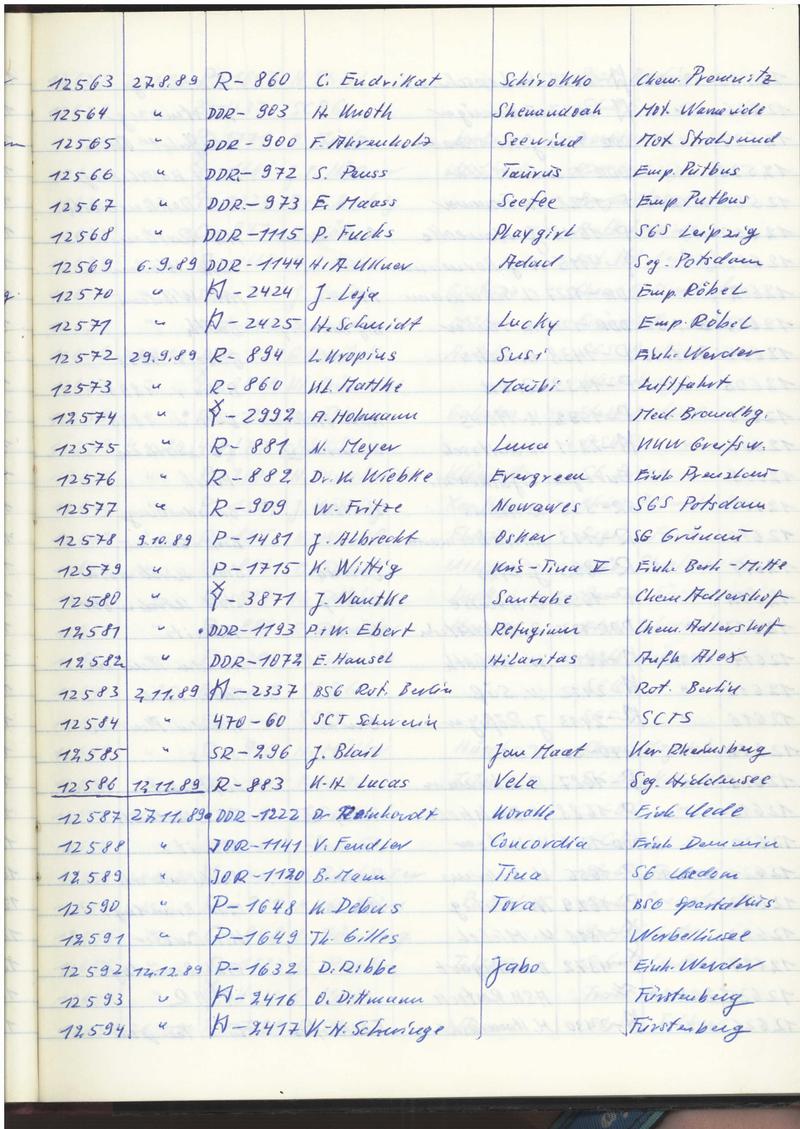 12563 27.8.89 R-860 C. Endrikat Schirokko Chem. Premnitz
12564 " DDR-903 H. Knoth Shenandoah Mot. Warnemünde
12565 " DDR-900 F. Ahrenholz Seewind Mot Stralsund
12566 " DDR-972 S. Peuss Taurus Emp. Putbus
12567 " DDR-973 E. Maass Seefee Emp Putbus
12568 " DDR-1115 P. Fuchs Playgirl SGS Leipzig
12569 6.9.89 DDR-1144 Adad Seg. Potsdam
12570 " -2424 J. Leja Emp. Röbel
12571 " -2425 H. Schmidt Lucky Emp. Röbel
12572 29.9.89 R-894 L. Kropius Susi Einh. Werder
12573 " R-860 Kl. Mattke Maubi Luftfahrt
12574 " -2992 A. Hohmann Med. Brandbg.
12575 " R-881 N. Meyer Luna KKW Greifsw.
12576 " R-882 Dr. K. Wiebke Evergreen Einh Prenzlau
12577 " R-909 W. Fritze Nowawes SGS Potsdam
12578 9.10.89 P-1481 J. Albrecht Oskar SG Grünau
12579 " P-1715 K. Wittig Kris-Tina V Einh. Berl.-Mitte
12580 " -3871 J. Nautke Santabe Chem Adlershof
12581 " DDR-1193 P.W. Ebert Refugium Chem. Adlershof
12582 " DDR-1072 E. Hansel Hilaritas Aufb Alex
12583 2.11.89 -2337 BSG Rot. Berlin Rot. Berlin
12584 " 470-60 SCT Schwerin SCTS
12585 " SR-296 J. Blail Jan Maat Ker Rheinsberg
12586 12.11.89 R-883 K-H. Lucas Vela Seg. Hiddensee
12587 27.11.89 DDR-1222 Dr. Reinhardt Koralle Einh
12588 " JOR-1141 V. Fendler Concordia Einh Demmin
12589 " JOR-1120 B. Mann Tina SG Usedom
12590 " P-1648 K. Debus Tova BSG Spartakus
12591 " P-1649 Th. Gilles Werbellinsee
12592 12.12.89 P-1632 D. Ribbe Jabo Einh. Werder
12593 " -2416 O. Dittmann Fürstenberg
12594 " -2417 K-H. Schwinge Fürstenberg